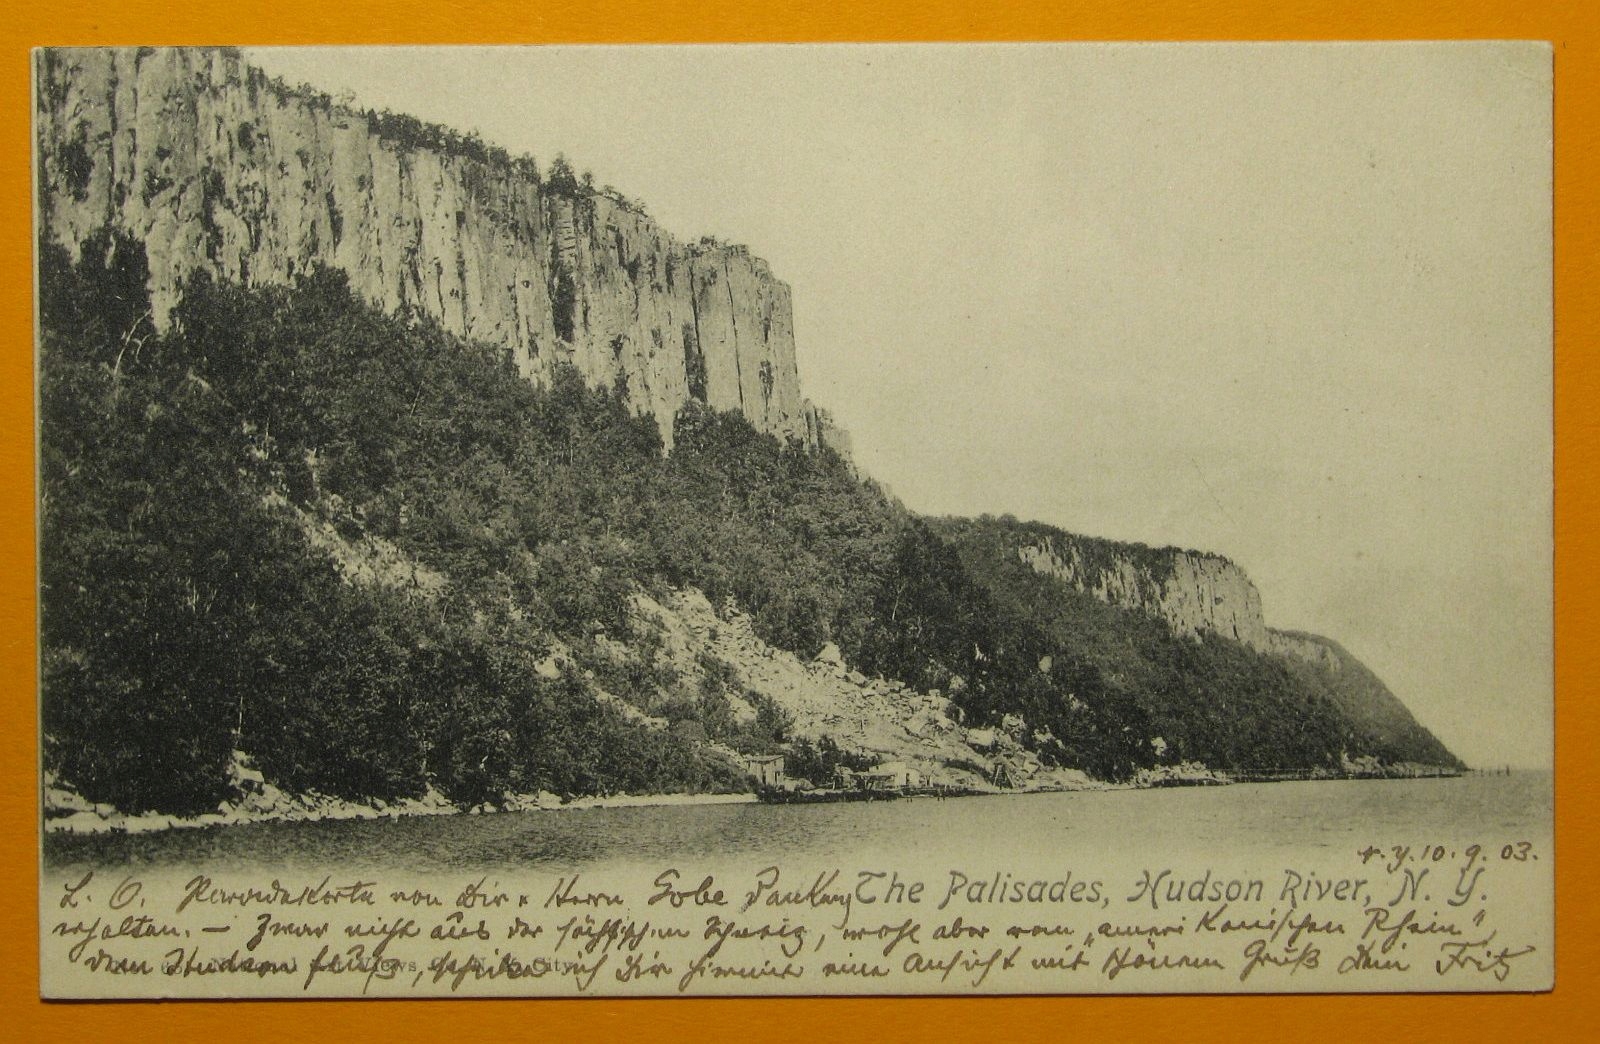 N. Y. 10. 9. 03.
The Palisades, Hudson River, N. Y.
L. O. von Dir & Herrn
erhalten. — Zwar nicht aus der sächsischen Schweiz, wohl aber vom „amerikanischen Rhein",
dem Hudson fluß, schicke ich Dir hiermit eine Ansicht mit schönem Gruß Dein Fritz